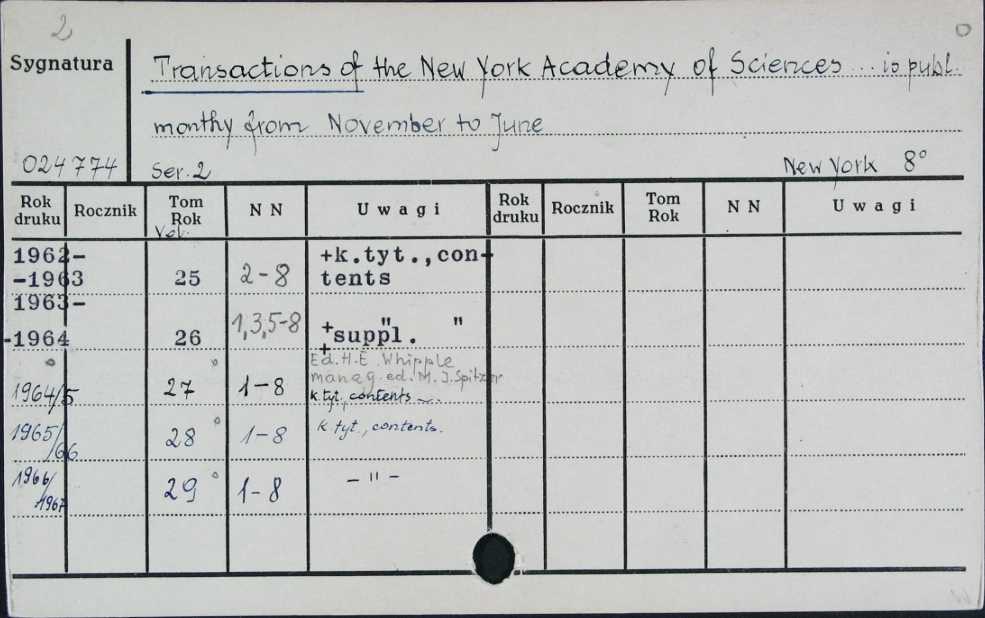 2
Sygnatura
Transactions of the New York Academy of Sciences ... is publ.
monthy from November to June
024774 Ser. 2 New York 8°
Rok druku Rocznik Tom Rok N N Uwagi Rok druku Rocznik Tom Rok N N Uwagi
Vol.
1962- +k.tyt.,con-
-1963 25 2-8 tents
1963- + " "
-1964 26 1,3,5-8 +suppl.
Ed. H.E. Whipple
manag. ed. M. J. Spitzer
1964/5 27 1-8 k. tyt., contents
1965/66 28 1-8 k tyt., contents.
1966/1967 29 1-8 - " -